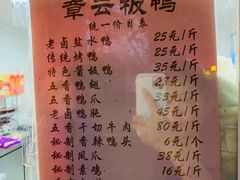 章云板鸭
统一价目表
老卤盐水鸭 25元/斤
传统烤鸭 25元/斤
特色酱板鸭 35元/斤
五香鸭翅 28元/斤
五香鸭爪 35元/斤
老卤鸭胗 45元/斤
五香干切牛肉 80元/斤
秘制香辣鸭头 6元/个
秘制凤爪 38元/斤
秘制素鸡 16元/斤